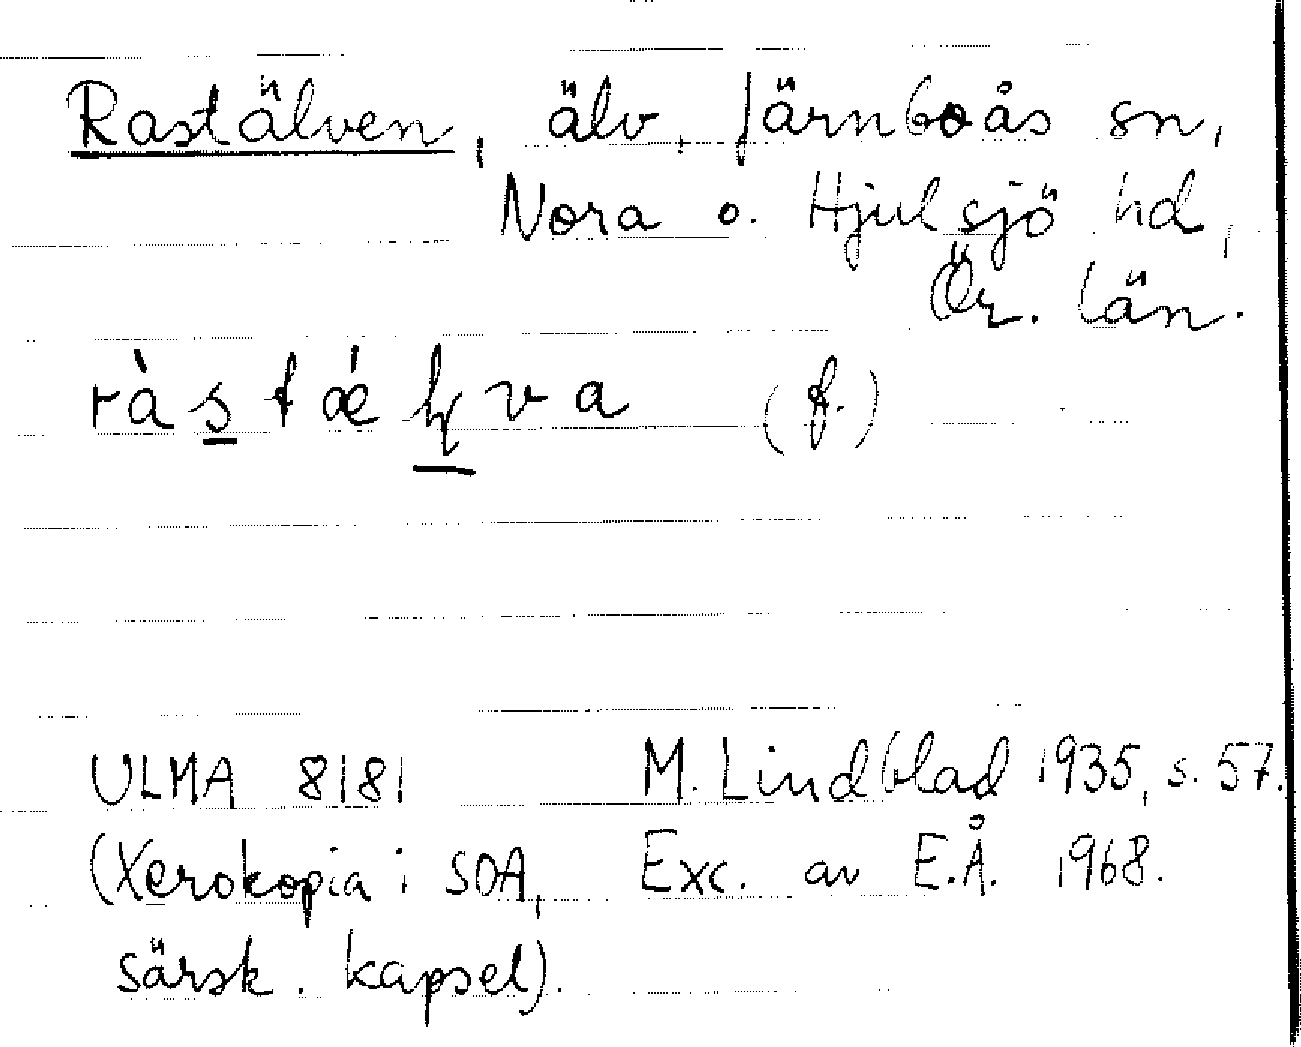 Rastälven, älv, Järnboås sn,
Nora o. Hjulsjö hd,
Ör. län.
ràs̲tǽḻva (f.)
ULMA 8181 M. Lindblad 1935, s. 57.
(Xerokopia i SOA, Exc. av E.Å. 1968.
särsk. kapsel).